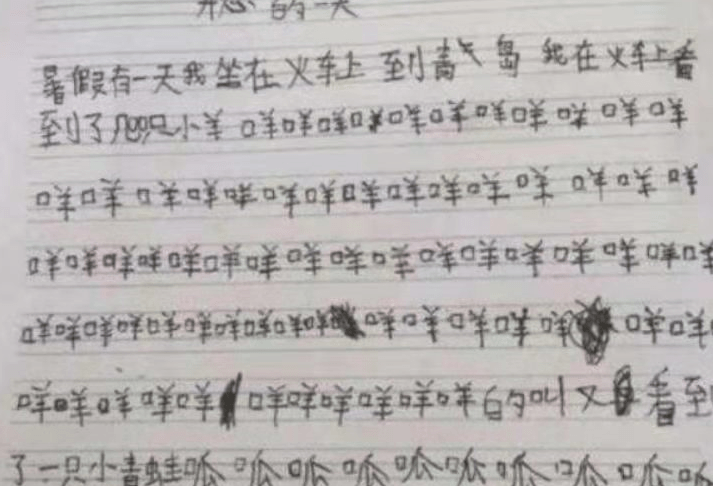 开心的一天
暑假有一天我坐在火车上到青岛我在火车上看
到了几只小羊咩咩咩咩咩咩咩咩咩咩咩
咩咩咩咩咩咩咩咩咩咩咩咩咩咩咩
咩咩咩咩咩咩咩咩咩咩咩咩咩咩咩咩咩
咩咩咩咩咩咩咩咩咩咩咩咩咩咩咩咩
咩咩咩咩咩咩咩咩咩咩咩的叫又看到
了一只小青蛙呱呱呱呱呱呱呱呱呱呱